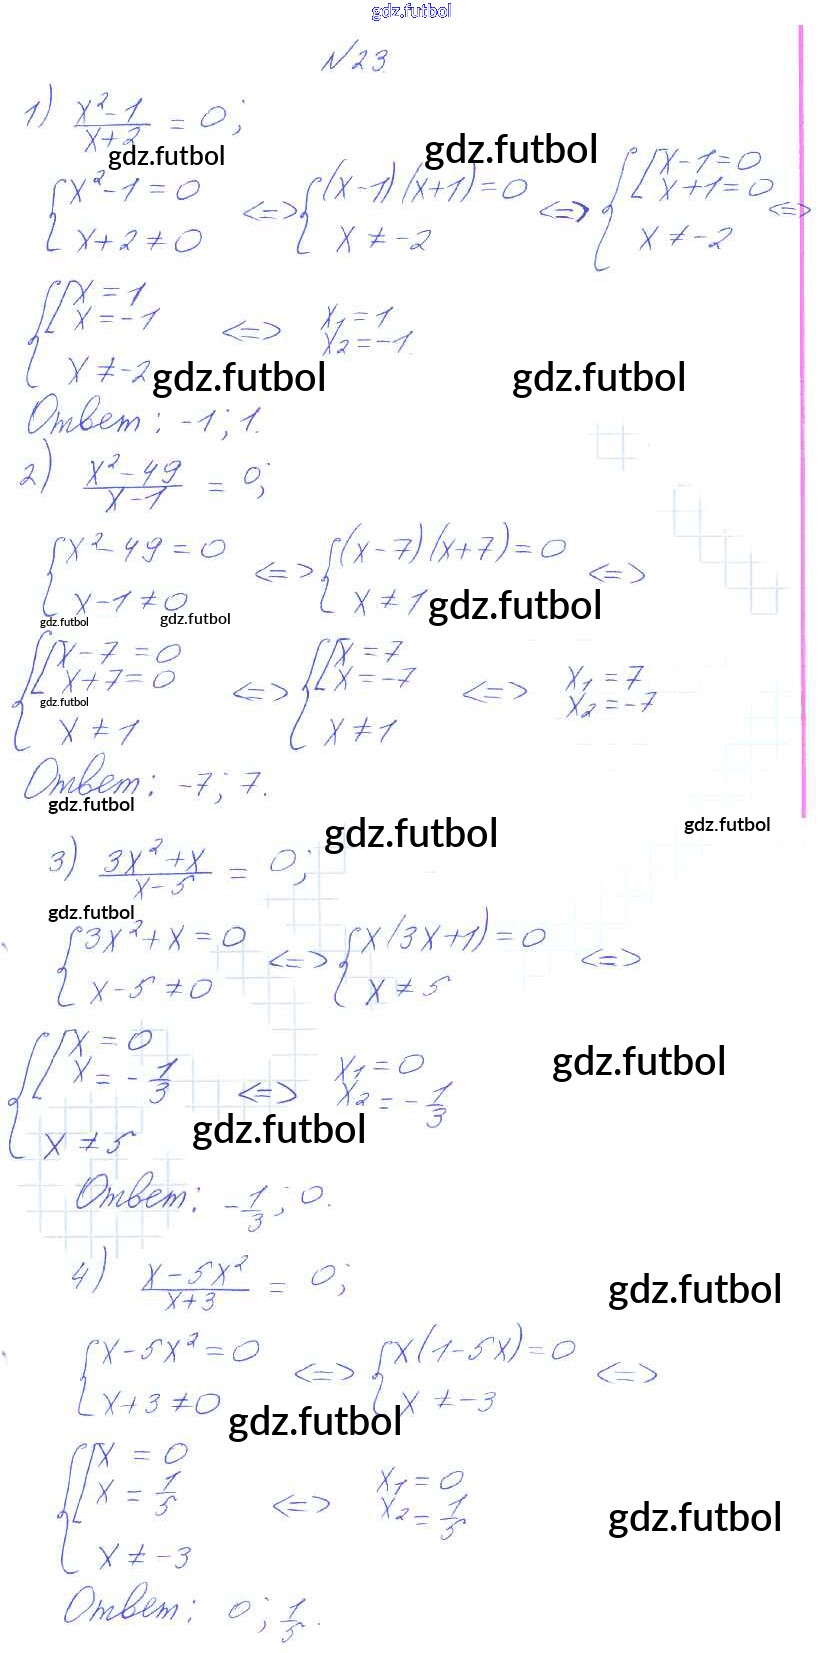 gdz.futbol
№23.
1) (x²-1)/(x+2) = 0;
gdz.futbol gdz.futbol
{x²-1=0 <=> {(x-1)(x+1)=0 <=> {[x-1=0
x+1=0 <=>
x+2≠0 x≠-2 x≠-2
{[x=1
x=-1 <=> x₁=1
x₂=-1.
x≠-2 gdz.futbol gdz.futbol
Ответ: -1; 1.
2) (x²-49)/(x-1) = 0;
{x²-49=0 <=> {(x-7)(x+7)=0 <=>
x-1≠0 x≠1 gdz.futbol
gdz.futbol gdz.futbol
{[x-7=0 {[x=7
x+7=0 <=> x=-7 <=> x₁=7
x₂=-7
gdz.futbol
x≠1 x≠1
Ответ: -7; 7.
gdz.futbol gdz.futbol gdz.futbol
3) (3x²+x)/(x-5) = 0;
gdz.futbol
{3x²+x=0 <=> {x(3x+1)=0 <=>
x-5≠0 x≠5
{[x=0
x=-1/3 <=> x₁=0
x₂=-1/3
gdz.futbol
x≠5 gdz.futbol
Ответ: -1/3; 0.
4) (x-5x²)/(x+3) = 0;
gdz.futbol
{x-5x²=0 <=> {x(1-5x)=0 <=>
x+3≠0 x≠-3
gdz.futbol
{[x=0
x=1/5 <=> x₁=0
x₂=1/5
gdz.futbol
x≠-3
Ответ: 0; 1/5.